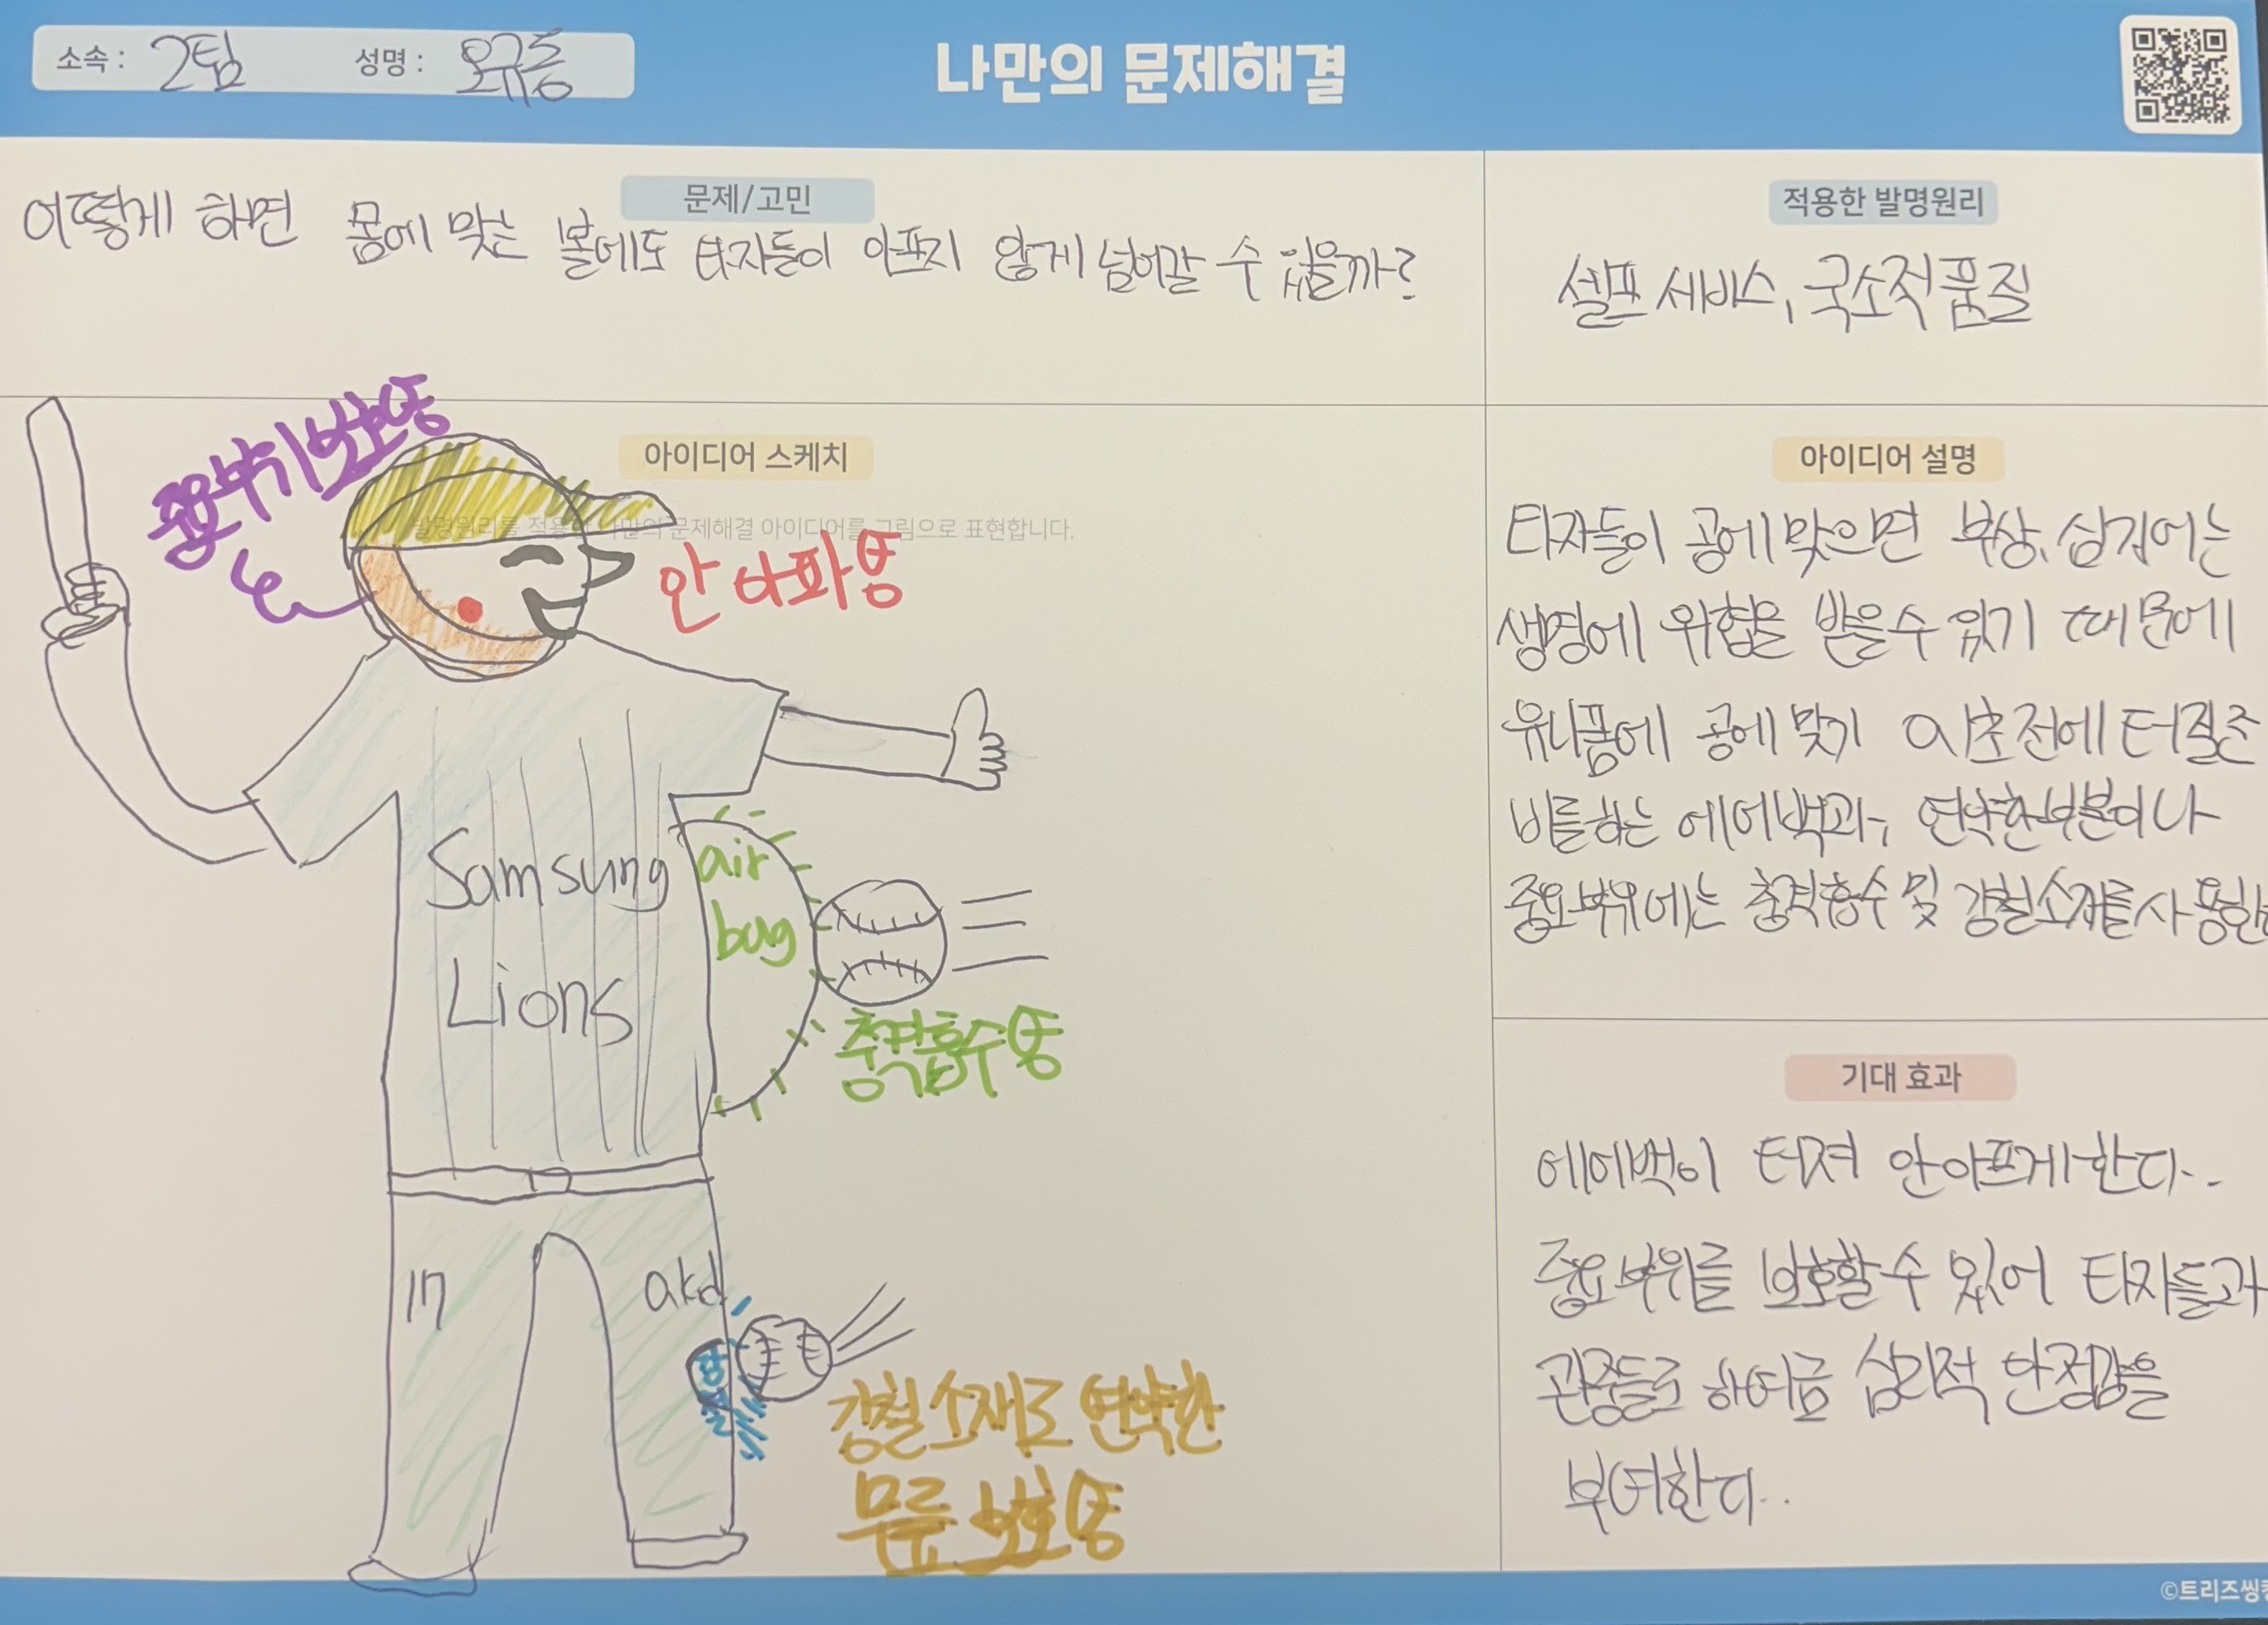 소속 : 2팀 성명 : 오규등
나만의 문제해결
문제/고민
어떻게 하면 몸에 맞는 볼에도 타자들이 아프지 않게 넘어갈 수 있을까?
적용한 발명원리
셀프 서비스, 국소적품질
아이디어 스케치
발명원리를 적용한 나만의 문제해결 아이디어를 그림으로 표현합니다.
중요부위보호용
안아파용
Samsung
Lions
air
bag
충격흡수용
17
강철
강철소재로 연약한
무릎 보호용
아이디어 설명
타자들이 공에 맞으면 부상, 심지어는
생명에 위협을 받을 수 있기 때문에
유니폼에 공에 맞기 0.1초전에 터질준
비를하는 에어백과, 연약한부분이나
중요부위에는 충격흡수 및 강철소재를 사용한
기대 효과
에어백이 터져 안아프게한다.
중요부위를 보호할수 있어 타자들과
관중들로 하여금 심리적 안정감을
부여한다..
©트리즈씽킹